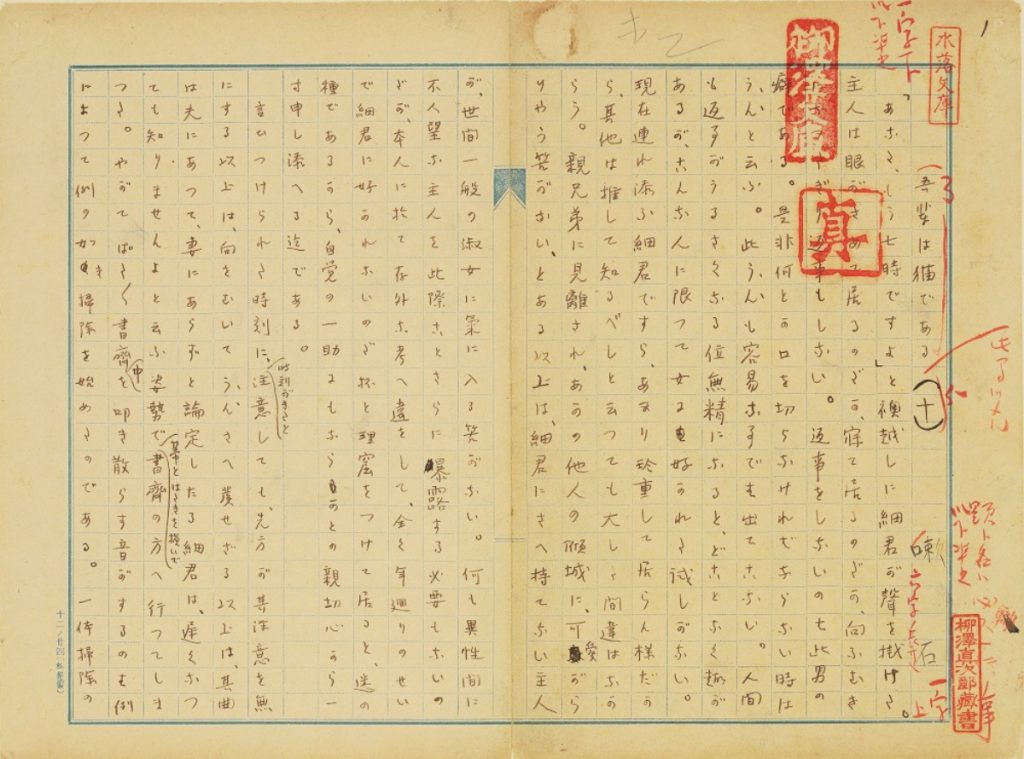 1
水落文庫
一字下
以下准之
真
柳澤眞次郎藏書
以下准之
一字
上
吾輩は猫である (十)
漱石
「あなた、もう七時ですよ」と襖越しに細君が聲を掛けた。
主人は眼がさめて居るのだか、寐て居るのだか、向ふむき
になつたぎり返事もしない。返事をしないのは此男の
癖である。是非何とか口を切らなければならない時は
うんと云ふ。此うんも容易な事では出てこない。人間
も返事がうるさくなる位無精になると、どことなく趣が
あるが、こんな人に限つて女に好かれた試しがない。
現在連れ添ふ細君ですら、あまり珍重して居らん様だか
ら、其他は推して知るべしと云つても大した間違はなか
らう。親兄弟に見離され、あかの他人の傾城に、可愛がら
りやう筈がない、とある以上は、細君にさへ持てない主人
が、世間一般の淑女に氣に入る筈がない。何も異性間に
不人望な主人を此際ことさらに暴露する必要もないの
だが、本人に於て存外な考へ違をして、全く年廻りのせい
で細君に好かれないのだ抔と理窟をつけて居ると、迷の
種であるから、自覚の一助にもならうかとの親切心から一
寸申し添へる迄である。
言ひつけられた時刻に、時刻がきたと注意しても、先方が其注意を無
にする以上は、向をむいてうんさへ發せざる以上は、其曲
は夫にあつて、妻にあらずと論定したる細君は、遅くなつ
ても知りませんよと云ふ姿勢で箒とはたきを擔いで書齋の方へ行つてしま
つた。やがてぱた〱書齋中を叩き散らす音がするのは例
によつて例の如き掃除を始めたのである。一体掃除の